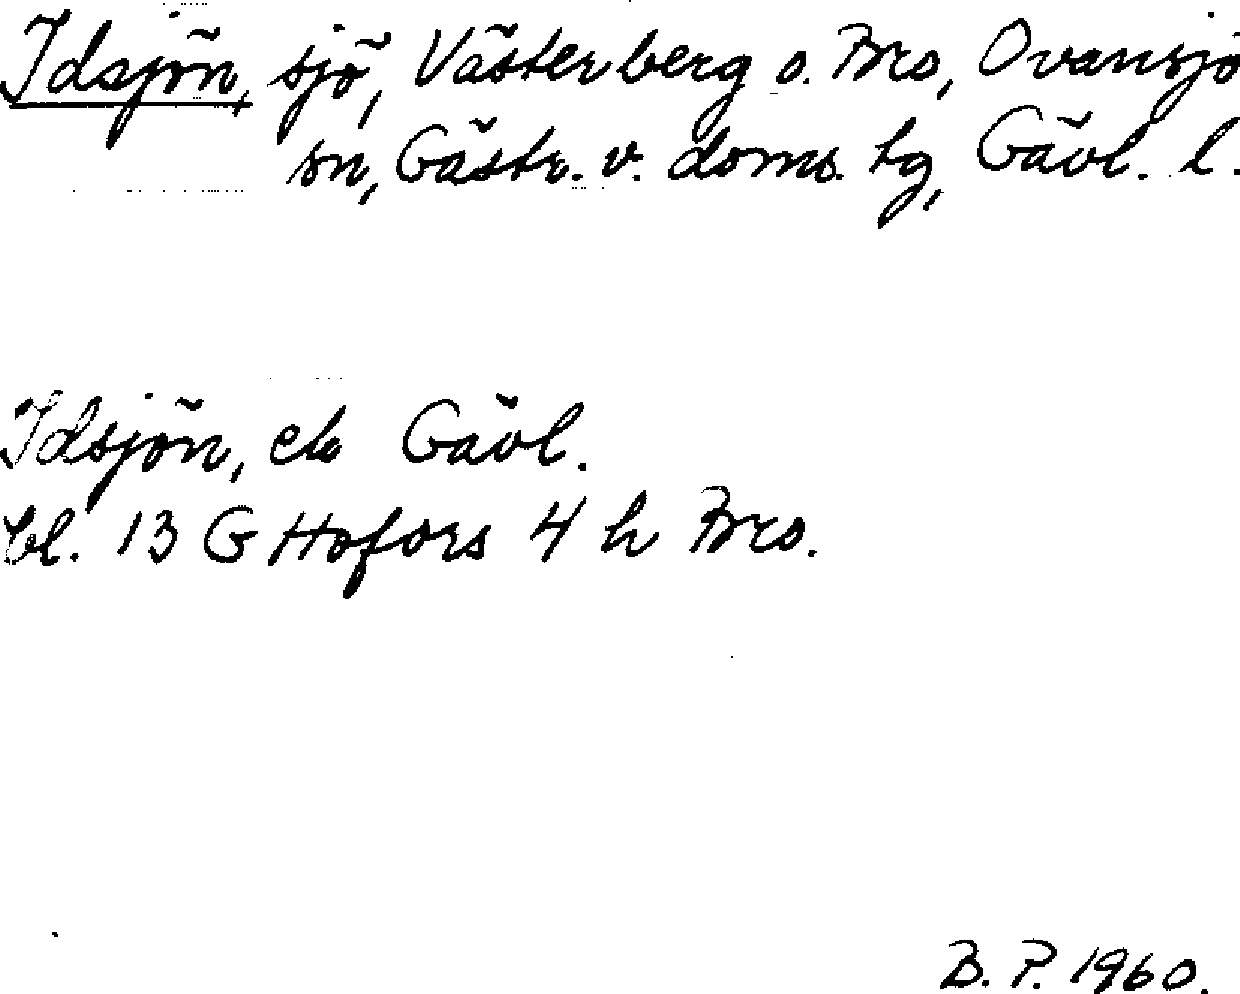 Idsjön, sjö, Västerberg o. Bro, Ovansjö
sn, Gästr. v. doms. tg, Gävl. l.
Idsjön, ek Gävl.
bl. 13 G Hofors 4 h Bro.
B. P. 1960.